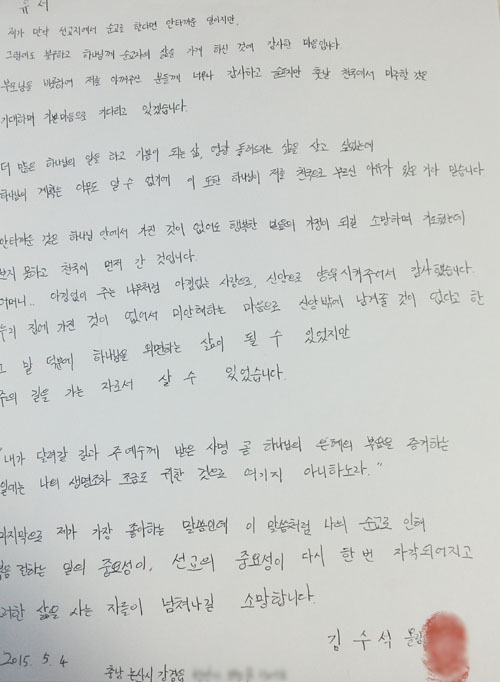 유 서
제가 만약 선교지에서 순교로 한다면 안타까운 일이지만,
그럼에도 불구하고 하나님께 순교자의 삶을 가게 하신 것에 감사한 마음입니다.
부모님을 비롯하여 저를 아껴주신 분들께 너무나 감사하고 슬프지만 훗날 천국에서 마주할 것을
기대하며 기쁜마음으로 기다리고 있겠습니다.
더 많은 하나님의 일을 하고 기쁨이 되는 삶, 영광 돌려드리는 삶을 살고 싶었는데
하나님의 계획은 아무도 알 수 없기에 이 또한 하나님이 저를 천국으로 부르신 이유가 있을 거라 믿습니다
안타까운 것은 하나님 안에서 가진 것이 없어도 행복한 믿음의 가정이 되길 소망하며 기도했는데
보지 못하고 천국에 먼저 간 것입니다.
어머니.. 아낌없이 주는 나무처럼 아낌없는 사랑으로, 신앙으로 양육시켜주어서 감사했습니다.
우리 집에 가진 것이 없어서 미안해하는 마음으로 신앙밖에 남겨줄 것이 없다고 한
그 말 덕분에 하나님을 외면하는 삶이 될 수 있었지만
주의 길을 가는 자로서 살 수 있었습니다.
"내가 달려갈 길과 주 예수께 받은 사명 곧 하나님의 은혜의 복음을 증거하는
일에는 나의 생명조차 조금도 귀한 것으로 여기지 아니하노라."
마지막으로 제가 가장 좋아하는 말씀인데 이 말씀처럼 나의 순교로 인해
복음 전하는 일의 중요성이, 선교의 중요성이 다시 한 번 자각되어지고
이러한 삶을 사는 자들이 넘쳐나길 소망합니다.
김 수 식
2015. 5. 4
충남 논산시 강경읍